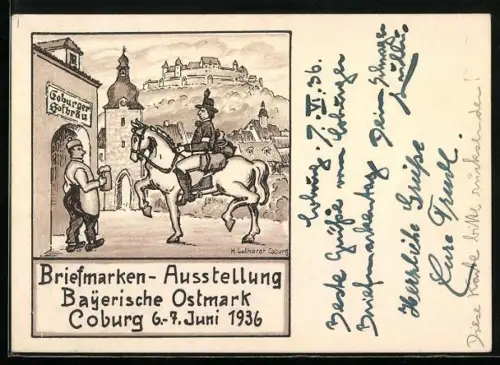 Coburger
Hofbräu
H. Lothardt Coburg
Briefmarken - Ausstellung
Bayerische Ostmark
Coburg 6.-7. Juni 1936
Coburg, 7. VI. 36.
Beste Grüße vom Coburger
Briefmarkentag Dein Schwager
Herzliche Grüße
Diese Karte bitte rücksenden!